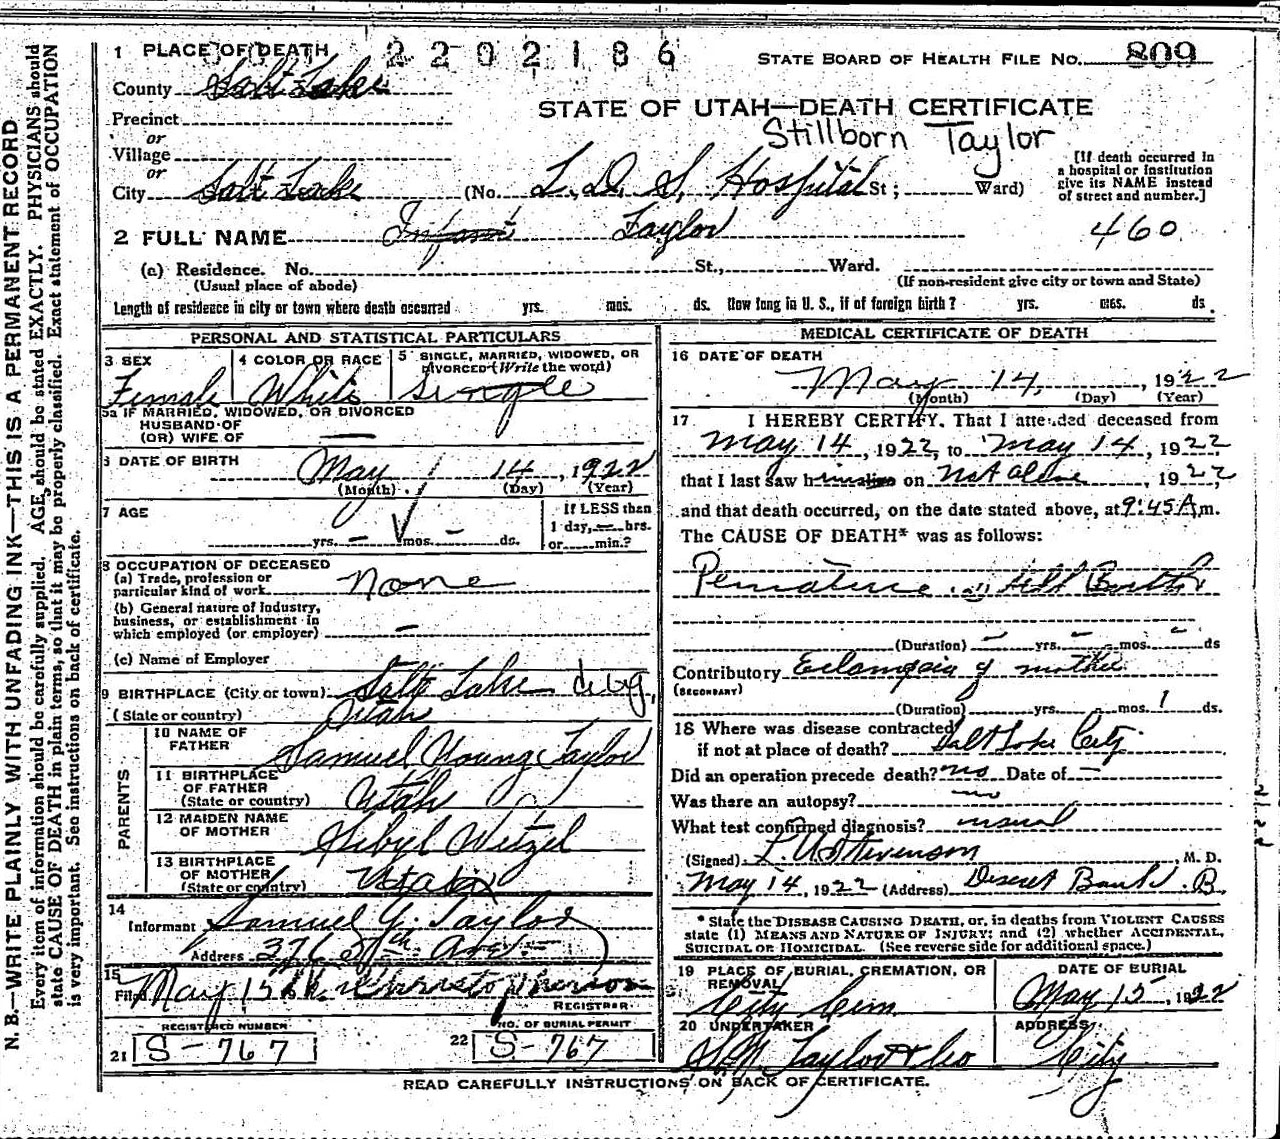 1 PLACE OF DEATH 2202186 STATE BOARD OF HEALTH FILE NO. 809
County Salt Lake
STATE OF UTAH—DEATH CERTIFICATE
Precinct
Stillborn Taylor
or
Village
or
City Salt Lake (No. L.D.S. Hospital St; Ward)
[If death occurred in
a hospital or institution
give its NAME instead
of street and number.]
2 FULL NAME Infant Taylor 460
(a) Residence. No. St., Ward.
(Usual place of abode) (If non-resident give city or town and State)
Length of residence in city or town where death occurred yrs. mos. ds. How long in U. S., if of foreign birth? yrs. mos. ds.
PERSONAL AND STATISTICAL PARTICULARS
3 SEX 4 COLOR OR RACE 5 SINGLE, MARRIED, WIDOWED, OR
DIVORCED (Write the word)
Female White Single
5a IF MARRIED, WIDOWED, OR DIVORCED
HUSBAND OF
(OR) WIFE OF —
6 DATE OF BIRTH May 14, 1922
(Month) (Day) (Year)
7 AGE If LESS than
1 day, — hrs.
yrs. — mos. — ds. or min.?
8 OCCUPATION OF DECEASED
(a) Trade, profession or
particular kind of work None
(b) General nature of industry,
business, or establishment in
which employed (or employer) —
(c) Name of Employer
9 BIRTHPLACE (City or town) Salt Lake City,
(State or country) Utah
PARENTS
10 NAME OF
FATHER Samuel Young Taylor
11 BIRTHPLACE
OF FATHER
(State or country) Utah
12 MAIDEN NAME
OF MOTHER Sibyl Wetzel
13 BIRTHPLACE
OF MOTHER
(State or country) Utah
14
Informant Samuel Y. Taylor
Address 376 Ave.
15
Filed May 15 Christopherson
REGISTRAR
REGISTERED NUMBER NO. OF BURIAL PERMIT
21 S-767 22 S-767
MEDICAL CERTIFICATE OF DEATH
16 DATE OF DEATH
May 14, 1922
(Month) (Day) (Year)
17 I HEREBY CERTIFY, That I attended deceased from
May 14, 1922, to May 14, 1922
that I last saw h on Not alive, 1922,
and that death occurred, on the date stated above, at 9:45 A.m.
The CAUSE OF DEATH* was as follows:
Premature Still Birth
(Duration) — yrs. — mos. — ds
Contributory Eclampsia of mother
(SECONDARY)
(Duration) yrs. mos. 1 ds.
18 Where was disease contracted
if not at place of death? Salt Lake City
Did an operation precede death? no Date of —
Was there an autopsy? no
What test confirmed diagnosis? usual
(Signed) Stevenson, M. D.
May 14, 1922 (Address) Deseret Bank B.
* State the DISEASE CAUSING DEATH, or, in deaths from VIOLENT CAUSES
state (1) MEANS AND NATURE OF INJURY; and (2) whether ACCIDENTAL,
SUICIDAL OR HOMICIDAL. (See reverse side for additional space.)
19 PLACE OF BURIAL, CREMATION, OR
REMOVAL
City Cem
DATE OF BURIAL
May 15, 1922
20 UNDERTAKER ADDRESS
S.M. Taylor & Co City
READ CAREFULLY INSTRUCTIONS ON BACK OF CERTIFICATE.
N. B.—WRITE PLAINLY WITH UNFADING INK—THIS IS A PERMANENT RECORD
Every item of information should be carefully supplied. AGE should be stated EXACTLY. PHYSICIANS should
state CAUSE OF DEATH in plain terms, so that it may be properly classified. Exact statement of OCCUPATION
is very important. See instructions on back of certificate.